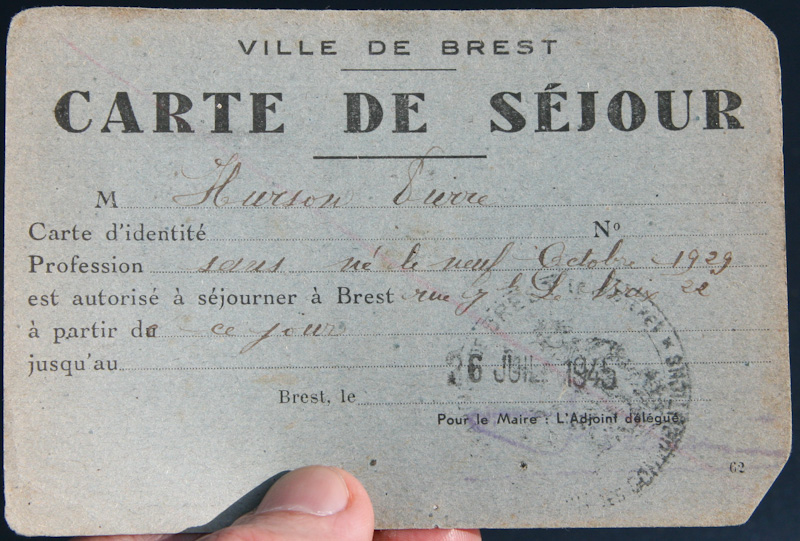 VILLE DE BREST
CARTE DE SÉJOUR
M Hurson Pierre
Carte d'identité N°
Profession sans né le neuf Octobre 1929
est autorisé à séjourner à Brest rue 22
à partir de ce jour
jusqu'au
26 JUIL 1945
Brest, le
Pour le Maire : L'Adjoint délégué,
62